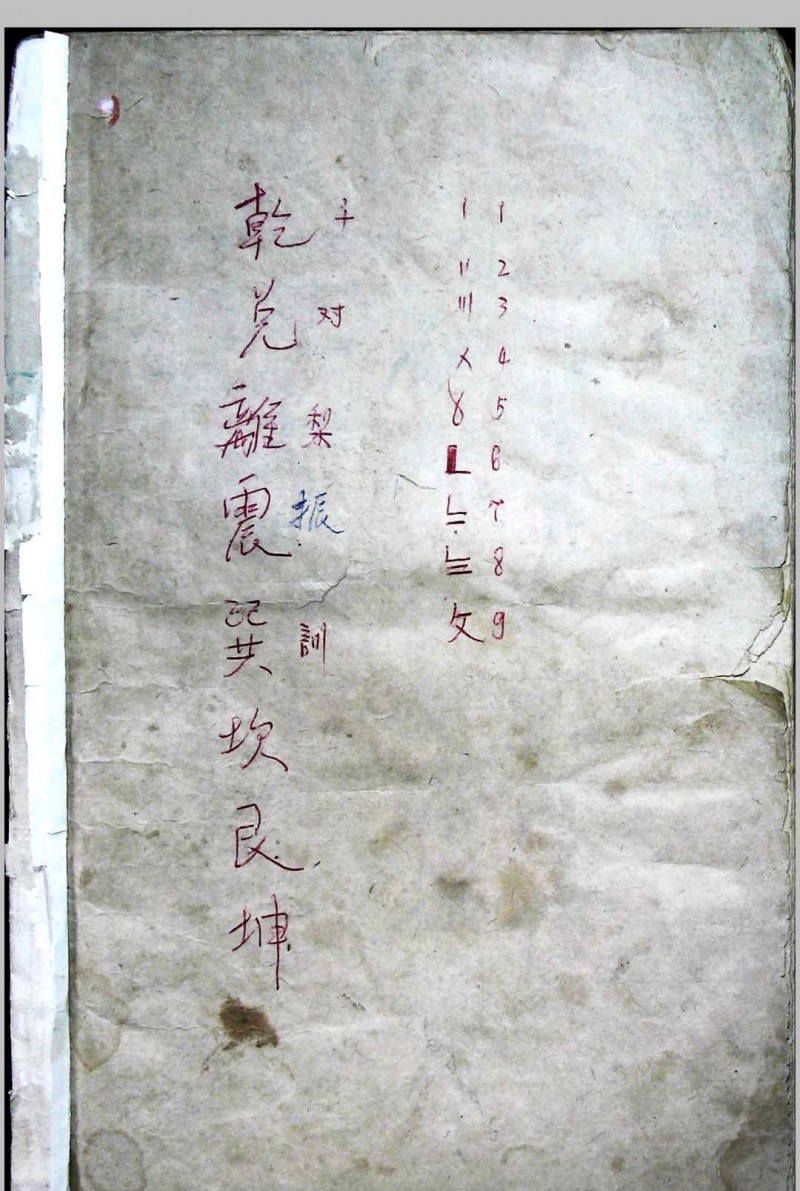 1 2 3 4 5 6 7 8 9
〡 〢 〣 〤 〥 〦 〧 〨 〩
千 对 梨 振 訓
乾 兑 離 震 巽 坎 艮 坤